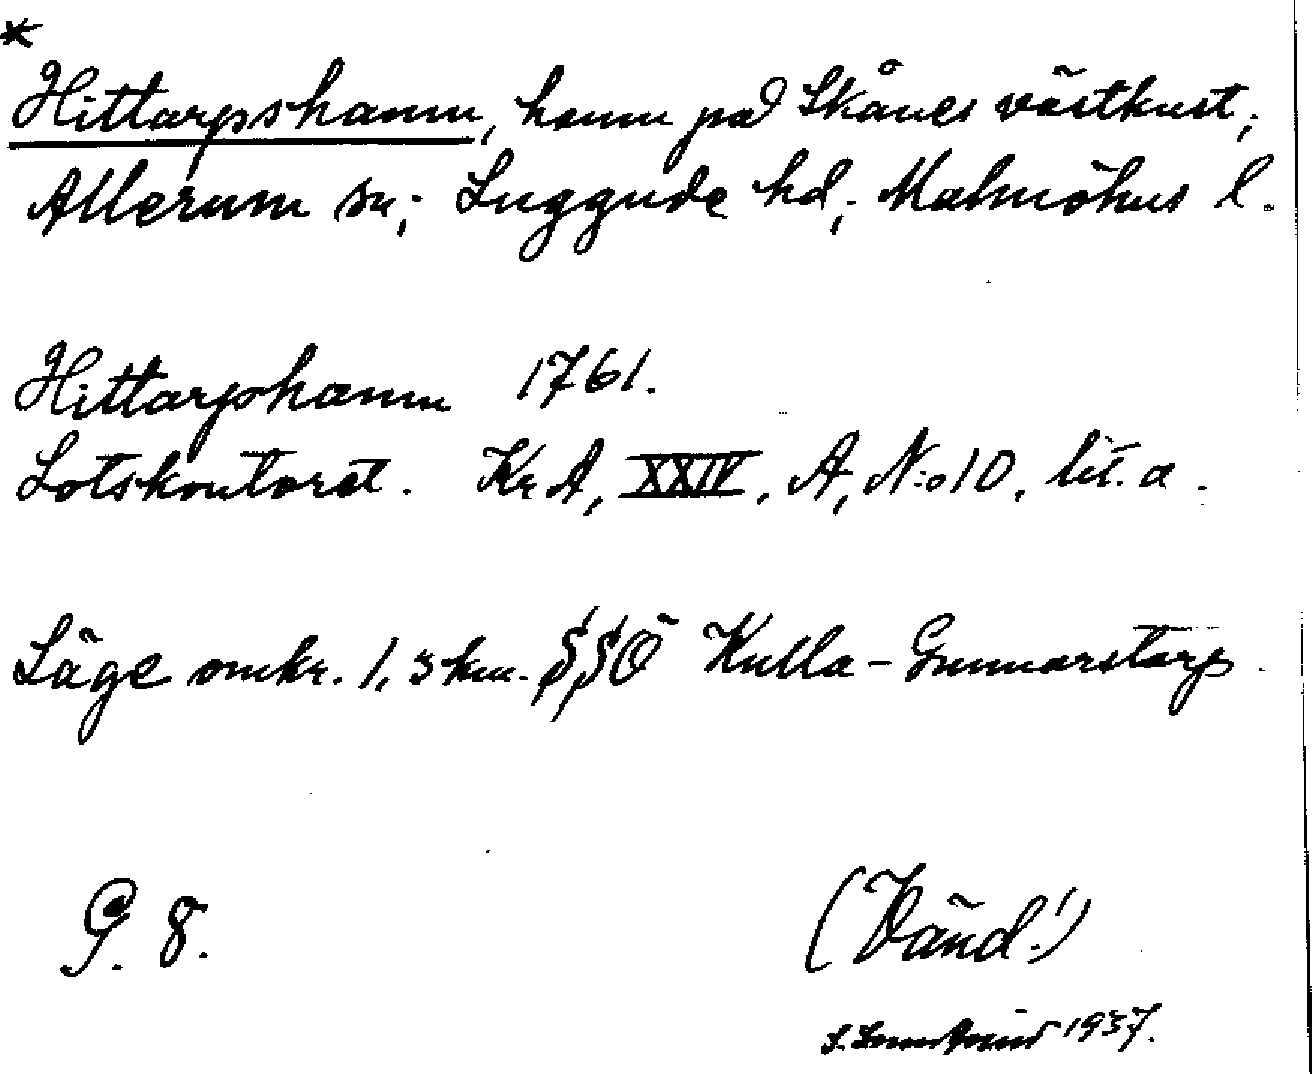 *
Hittarpshamn, hamn på Skånes västkust;
Allerum sn; Luggude hd; Malmöhus l.
Hittarpshamn 1761.
Lotskontoret. Kr A, XXIV, A, N:o 10, lit. a.
Läge omkr. 1,3 km. SSÖ Kulla-Gunnarstorp.
G. 8.
(Vänd!)
S. 1937.